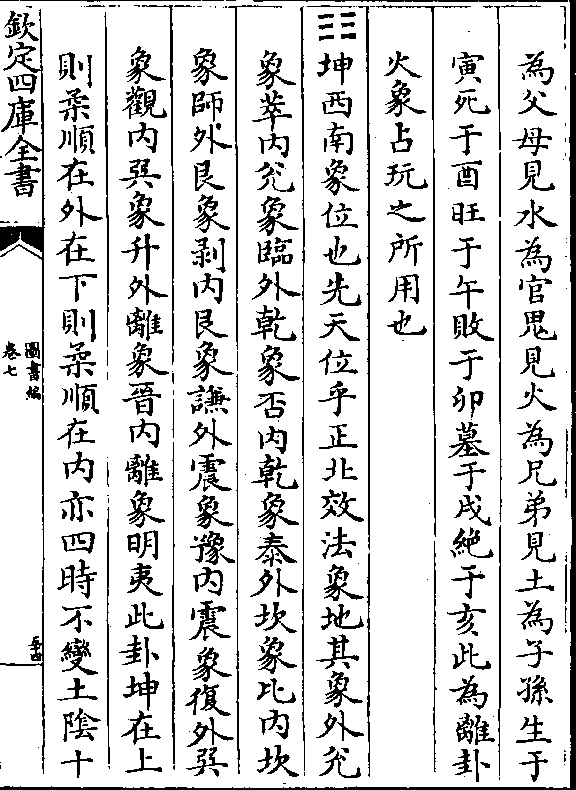 為父母見水為官鬼見火為兄弟見土為子孫生于
寅死于酉旺于午敗于卯墓于戌絶于亥此為離卦
火象占玩之所用也
☷坤西南象位也先天位乎正北效法象地其象外兊
象萃内兊象臨外乾象否内乾象泰外坎象比内坎
象師外艮象剥内艮象謙外震象豫内震象復外巽
象觀内巽象升外離象晉内離象明夷此卦坤在上
則柔順在外在下則柔順在内亦四時不變土陰十
欽定四庫全書
圖書編
卷七
五十四